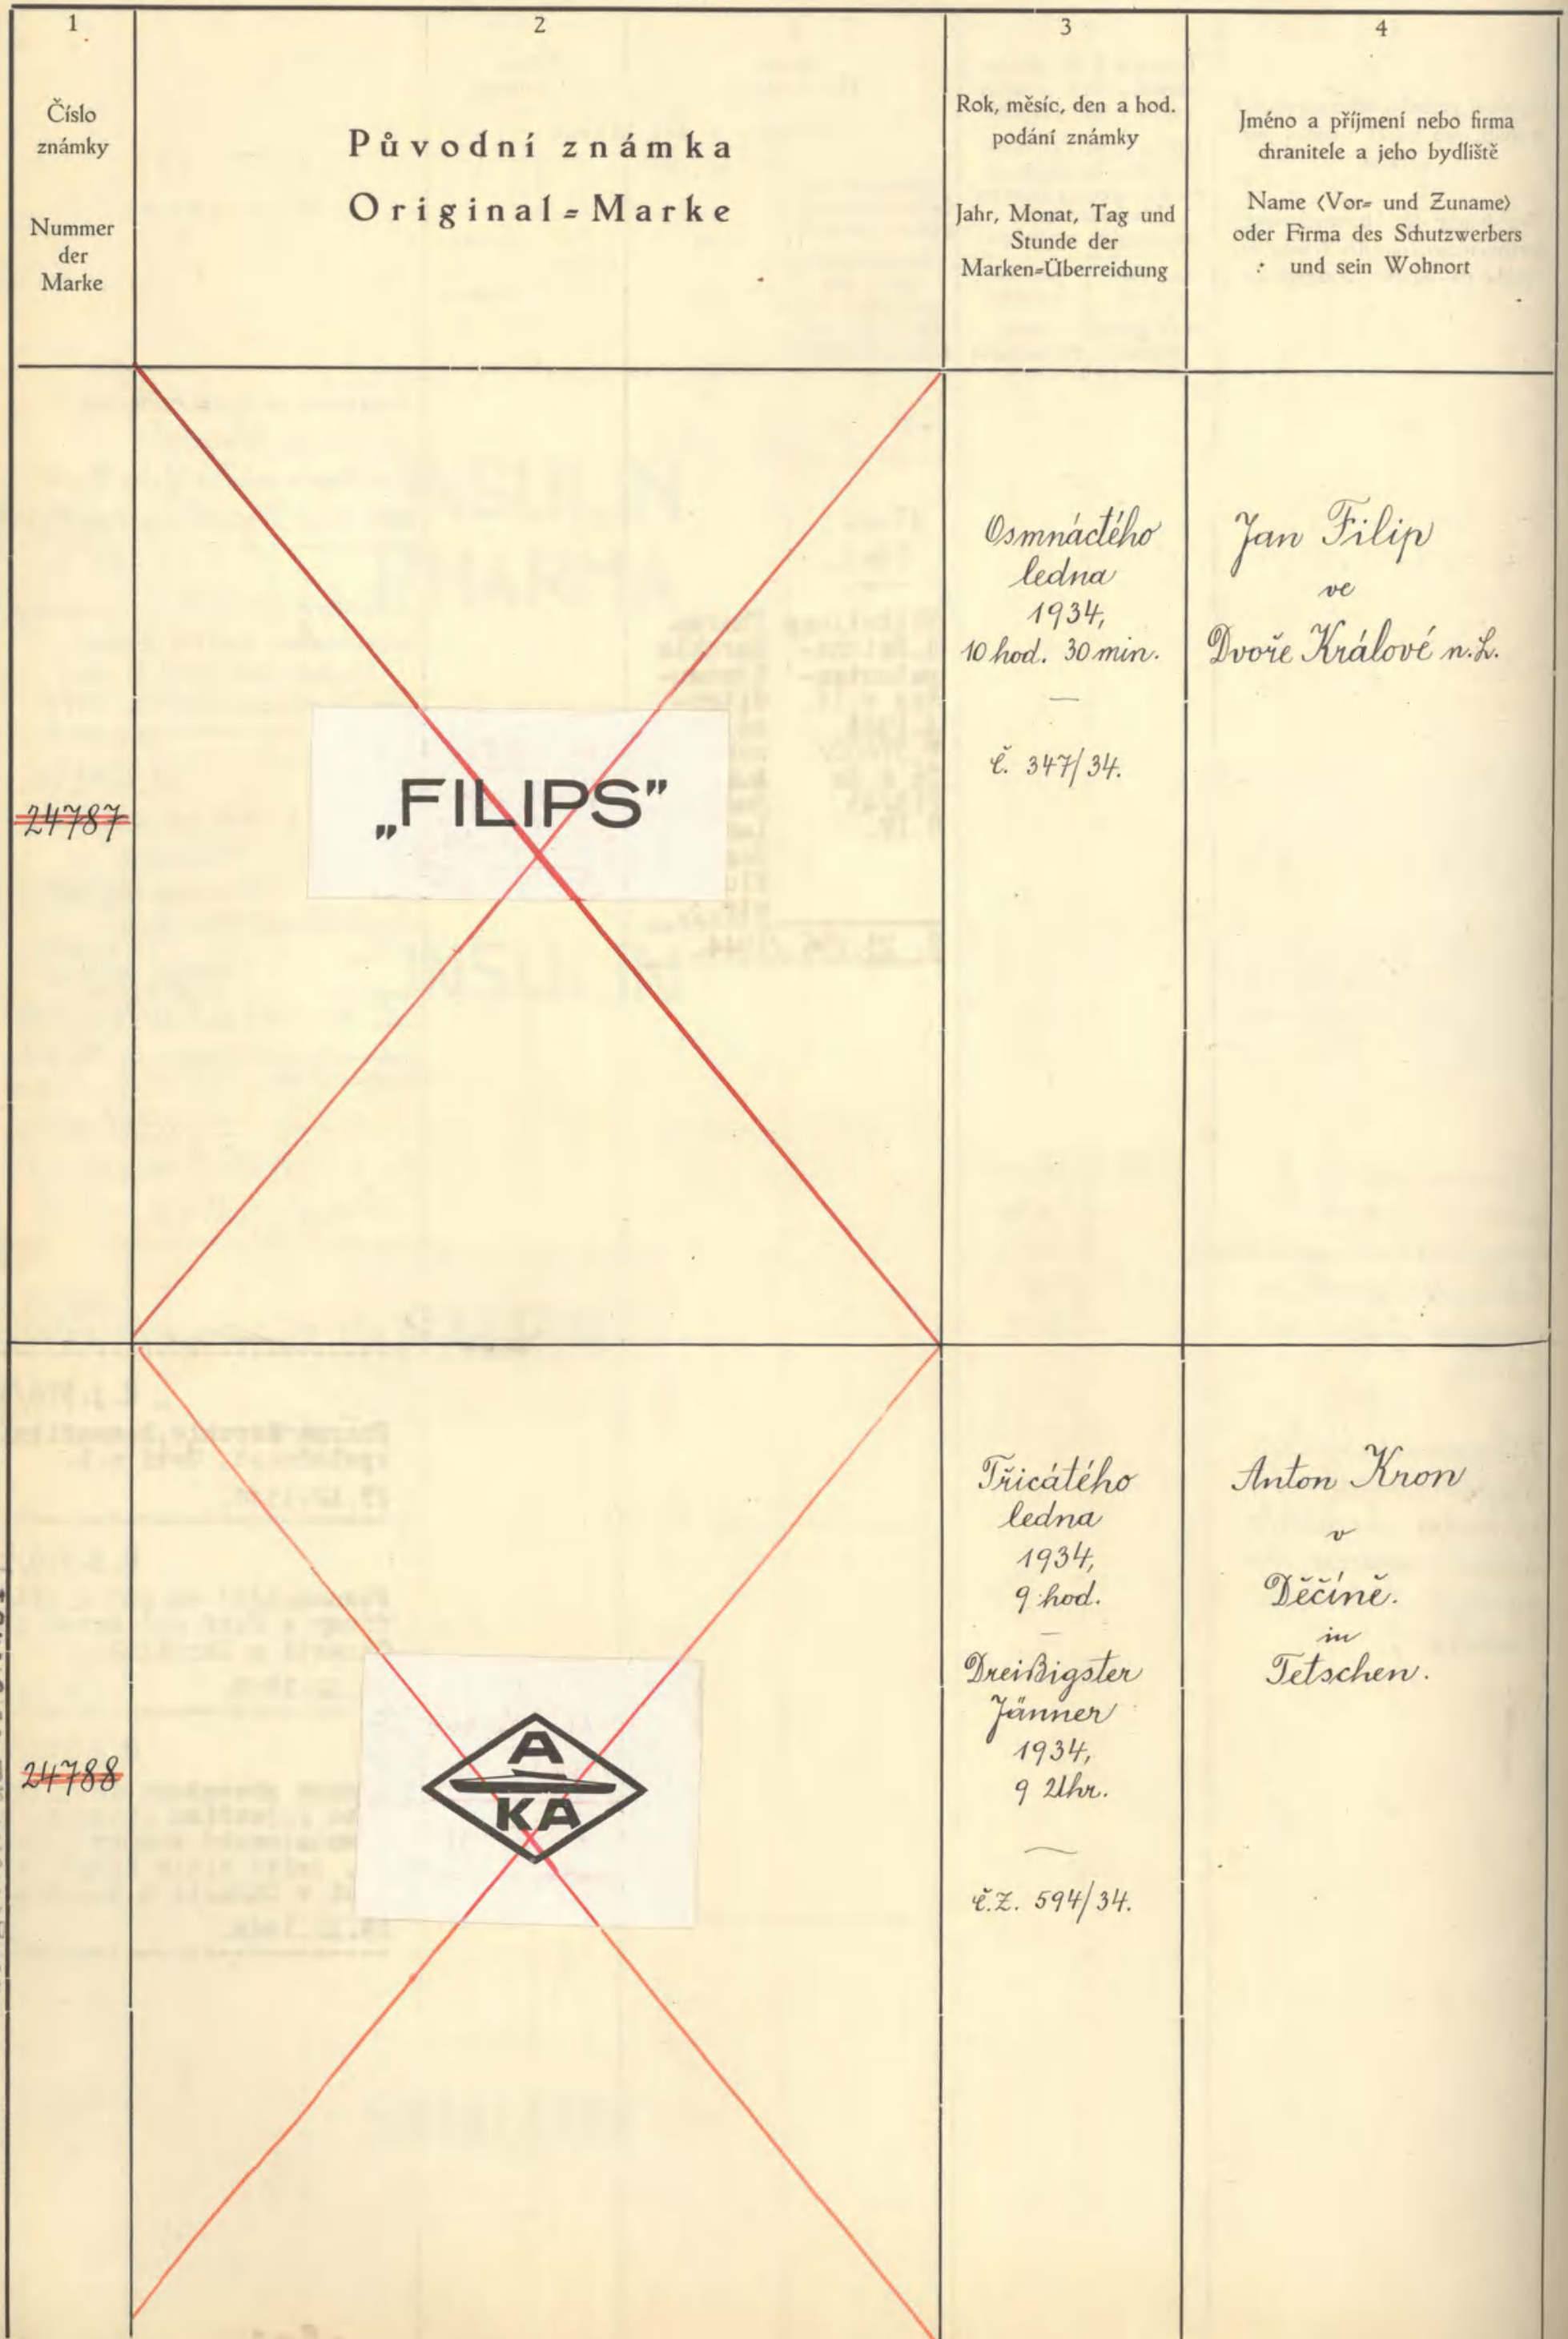 1
Číslo
známky
Nummer
der
Marke
2
Původní známka
Original=Marke
3
Rok, měsíc, den a hod.
podání známky
Jahr, Monat, Tag und
Stunde der
Marken=Überreichung
4
Jméno a příjmení nebo firma
chranitele a jeho bydliště
Name (Vor= und Zuname)
oder Firma des Schutzwerbers
und sein Wohnort
24787
„FILIPS”
Osmnáctého
ledna
1934,
10 hod. 30 min.
č. 347/34.
Jan Filip
ve
Dvoře Králové n.L.
24788
A
KA
Třicátého
ledna
1934,
9 hod.
Dreißigster
Jänner
1934,
9 Uhr.
č.Z. 594/34.
Anton Kron
v
Děčíně.
in
Tetschen.